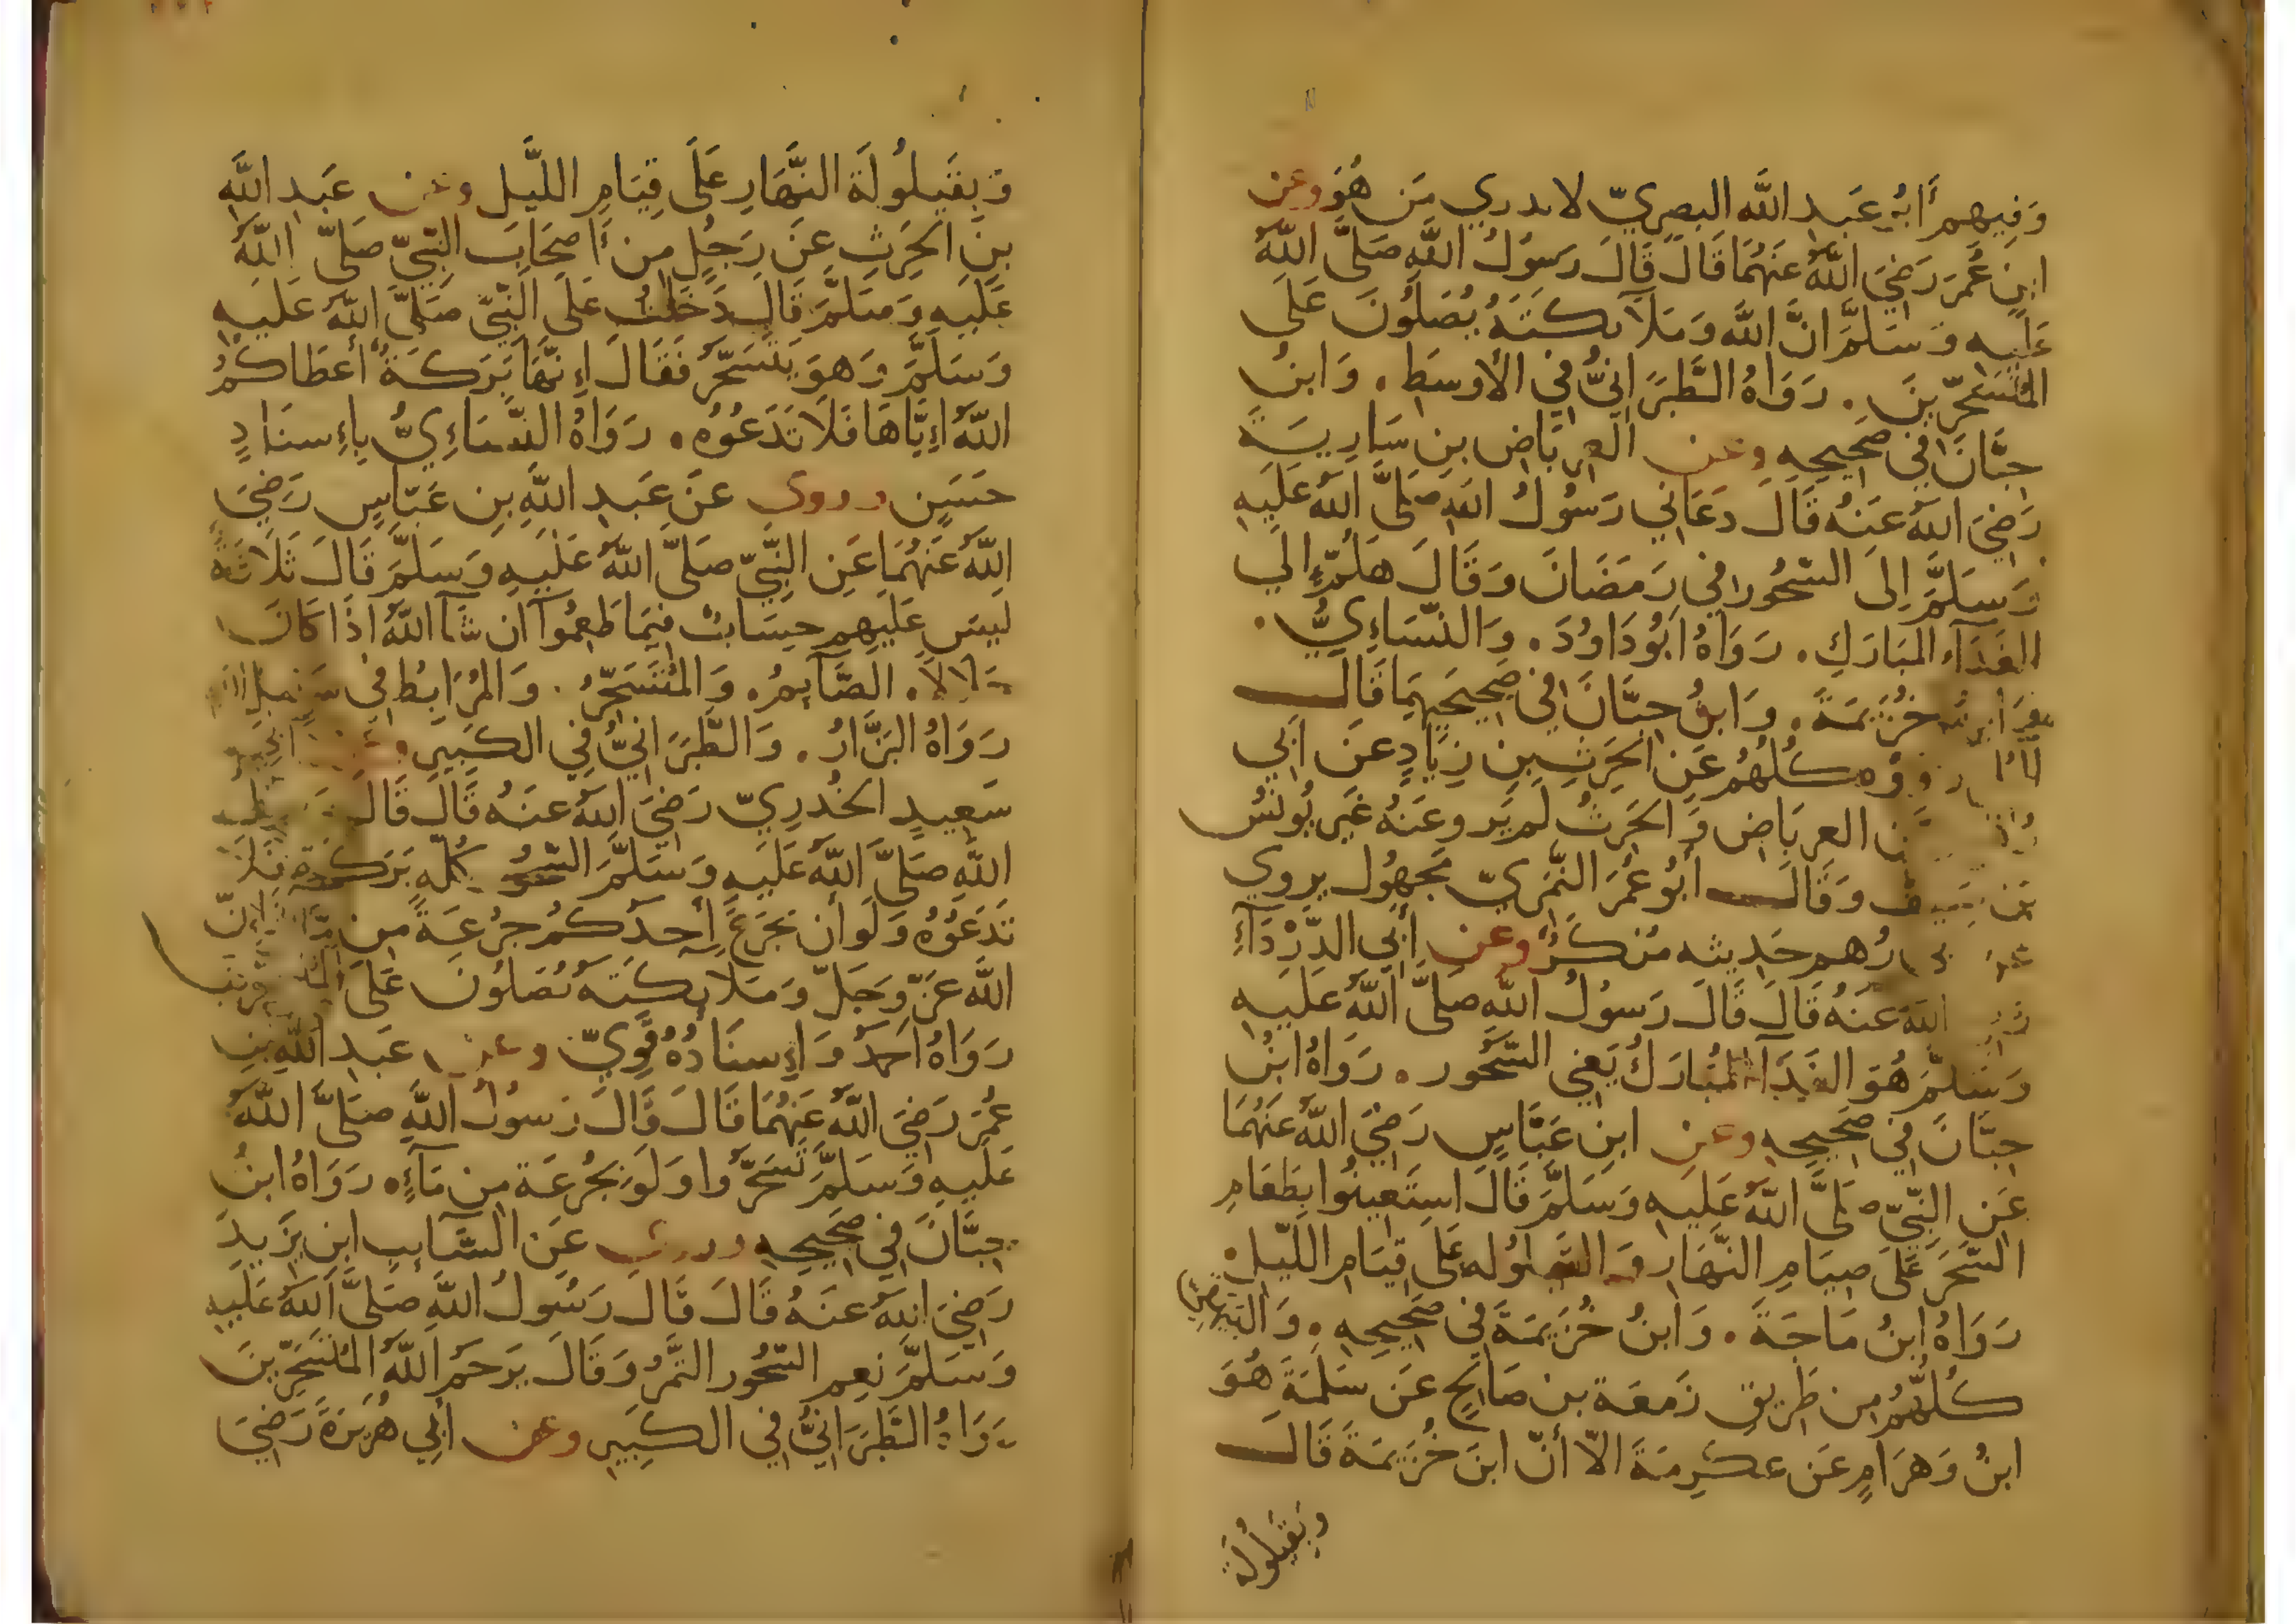 وَفِيهِم أَبُو عَبدِ اللَّه البصريّ لا يدري مَن هُوَ وعن
ابنِ عُمَرَ رَضِيَ اللَّهُ عَنهُمَا قَالَ قَالَ رَسُولُ اللَّهِ صَلَّى اللَّهُ
عَلَيهِ وَسَلَّمَ انَّ اللَّه وَمَلَآئكَتَهُ يُصَلُّونَ عَلَى
المُتَسَحِّرِينَ . رَوَاهُ الطَّبَرَانِيُّ فِي الأوسَطِ . وَابنُ
حِبَّانَ فِي صَحِيحِهِ وعن العِربَاضِ بنِ سَارِيَةَ
رَضِيَ اللَّهُ عَنهُ قَالَ دَعَانِي رَسُولُ اللَّهِ صَلَّى اللَّهُ عَلَيهِ
وَسَلَّمَ إِلَى السّحُورِ فِي رَمَضَانَ وَقَالَ هَلُمَّ إلَى
الغَدَآءِ المُبَارَكِ . رَوَاهُ ابُو دَاوُدَ . وَالنّسَاءِيُّ .
خُزَيمَةَ . وَابنُ حِبَّانَ فِي صَحِيحَيهِمَا قَالَ
كُلُّهُم عَنِ الحَرِثِ بنِ زِيَادٍ عَن أَبِي
العِربَاضِ وَالحَرِثُ لَم يَروِ عَنهُ غَير يُونُسُ
وَقَالَ أَبُو عُمَرَ النَّمَرِيّ مَجهُول يروي
رُهم حَدِيثه مُنكَرٌ وعن أَبِي الدَّرْدَآءِ
اللَّهُ عَنهُ قَالَ قَالَ رَسُولُ اللَّهِ صَلَّى اللَّهُ عَلَيهِ
وَسَلَّمَ هُوَ الغَدَآءُ المُبَارَكُ يَعنِي السّحُورَ . رَوَاهُ ابنُ
حِبَّانَ فِي صَحِيحِهِ وعن ابنِ عَبَّاسٍ رَضِيَ اللَّهُ عَنهُمَا
عَنِ النَّبِيِّ صَلَّى اللَّهُ عَلَيهِ وَسَلَّمَ قَالَ استَعِينُوا بِطَعَامِ
السَّحَرِ عَلَى صِيَامِ النَّهَارِ وَالقيلوله عَلَى قِيَامِ اللَّيلِ .
رَوَاهُ ابنُ مَاجَةَ . وَابنُ خُزَيمَةَ فِي صَحِيحِهِ . وَالبَيهَقِيّ
كُلُّهُم مِن طَرِيقِ زَمعَة بن صَالِحٍ عَن سَلَمَةَ هُوَ
ابنُ وَهرَامٍ عَن عِكرِمَةَ الّا أَنّ ابنَ خُزَيمَةَ قَالَ
وَبِقَيلُولَة
وَبِقَيلُولَة النَّهَارِ عَلَى قِيَامِ اللَّيلِ وعن عَبدِ اللَّهِ
بنِ الحَرِثِ عَن رَجُلٍ مِن أَصحَابِ النَّبِيِّ صَلَّى اللَّهُ
عَلَيهِ وَسَلَّمَ قَالَ دَخَلتُ عَلَى النَّبِيِّ صَلَّى اللَّهُ عَلَيهِ
وَسَلَّمَ وَهوَ يَتَسَحَّرُ فَقَالَ اءِنَّهَا بَرَكَةٌ أَعطَاكُمُ
اللَّهُ اءِيَّاهَا فَلَا تَدَعُوهُ . رَوَاهُ النّسَاءِيُّ بِاءِسنَادٍ
حَسَنٍ وروي عَن عَبدِ اللَّهِ بنِ عَبَّاسٍ رَضِيَ
اللَّهُ عَنهُمَا عَنِ النَّبِيِّ صَلَّى اللَّهُ عَلَيهِ وَسَلَّمَ قَالَ ثَلَاثَةٌ
لَيسَ عَلَيهِم حِسَابٌ فِيمَا طَعِمُوآ ان شَآءَ اللَّهُ اذَا كَانَ
حَلَالًا. الصَّآيِمُ . وَالمُتَسَحِّرُ . وَالمُرَابِطُ فِي
رَوَاهُ البَزَّارُ . وَالطَّبَرَانِيُّ فِي الكَبِيرِ
سَعِيدٍ الخُدرِيّ رَضِيَ اللَّهُ عَنهُ قَالَ قَالَ
اللَّهِ صَلَّى اللَّهُ عَلَيهِ وَسَلَّمَ السّحُورُ كُلّهِ بَرَكَة فَلَا
تَدَعُوهُ وَلَو أن يَجرَعَ أَحَدُكُم جُرعَةً مِن
اللَّهَ عَزَّ وَجَلَّ وَمَلَائكَتَهُ يُصَلُّونَ عَلَى
رَوَاهُ احمَدُ وَاءِسنَادُهُ قَوِيّ وعن عَبدِ اللَّهِ بنِ
عُمَرَ رَضِيَ اللَّهُ عَنهُمَا قَالَ قَالَ رَسُولُ اللَّهِ صَلَّى اللَّهُ
عَلَيهِ وَسَلَّمَ تَسَحَّرُوا وَلَو بِجُرعَة مِن مَآءٍ . رَوَاهُ ابنُ
حِبَّانَ فِي صَحِيحِهِ وروي عَنِ السَّآيِبِ ابنِ يَزِيدَ
رَضِيَ اللَّهُ عَنهُ قَالَ قَالَ رَسُولُ اللَّهِ صَلَّى اللَّهُ عَلَيهِ
وَسَلَّمَ نِعمَ السّحُور التَّمرُ وَقَالَ يَرحَمُ اللَّهُ المُتَسَحِّرِينَ
رَوَاهُ الطَّبَرَانِيُّ فِي الكَبِيرِ وعن أَبِي هُرَيرَةَ رَضِيَ